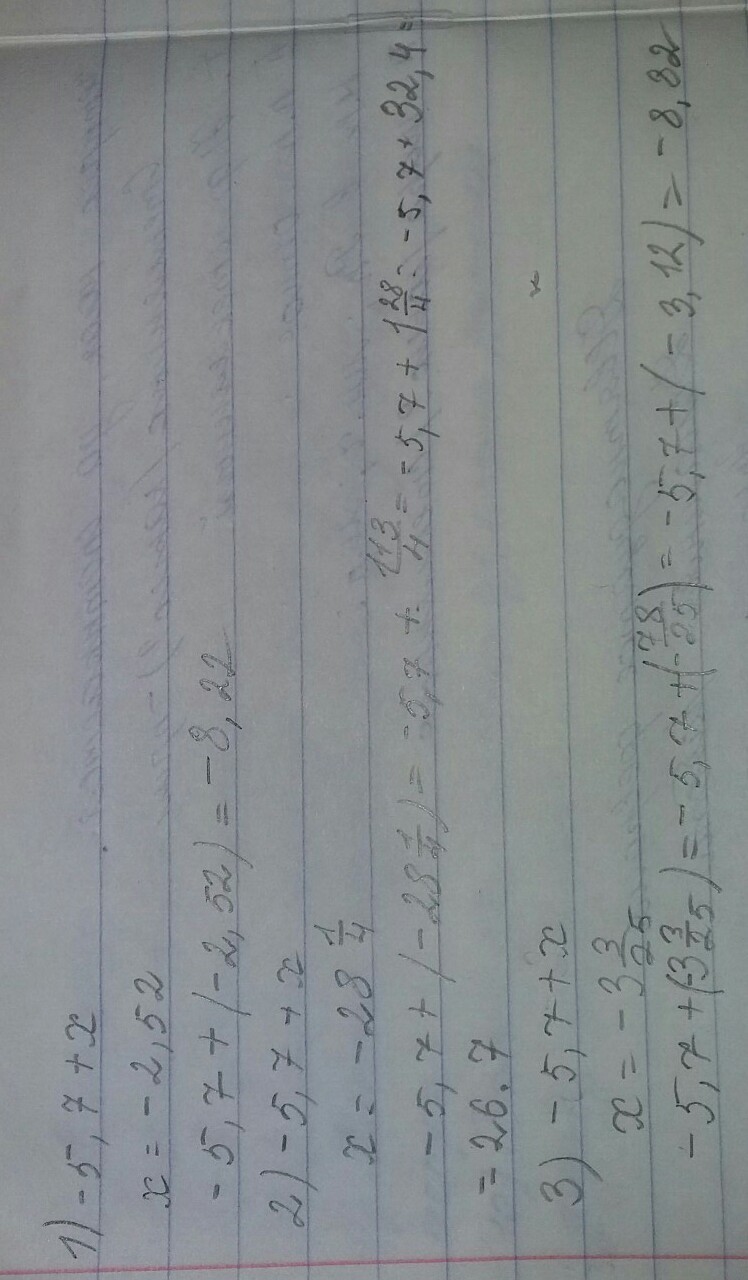 1) -5,7+x
x = -2,52
-5,7+(-2,52) = -8,22
2) -5,7+x
x = -28 1/4
-5,7+(-28 1/4) = -5,7+ 113/4 = -5,7+1 28/4 = -5,7+32,4 =
= 26.7
3) -5,7+x
x = -3 3/25
-5,7+(-3 3/25) = -5,7+(-78/25) = -5,7+(-3,12) = -8,82